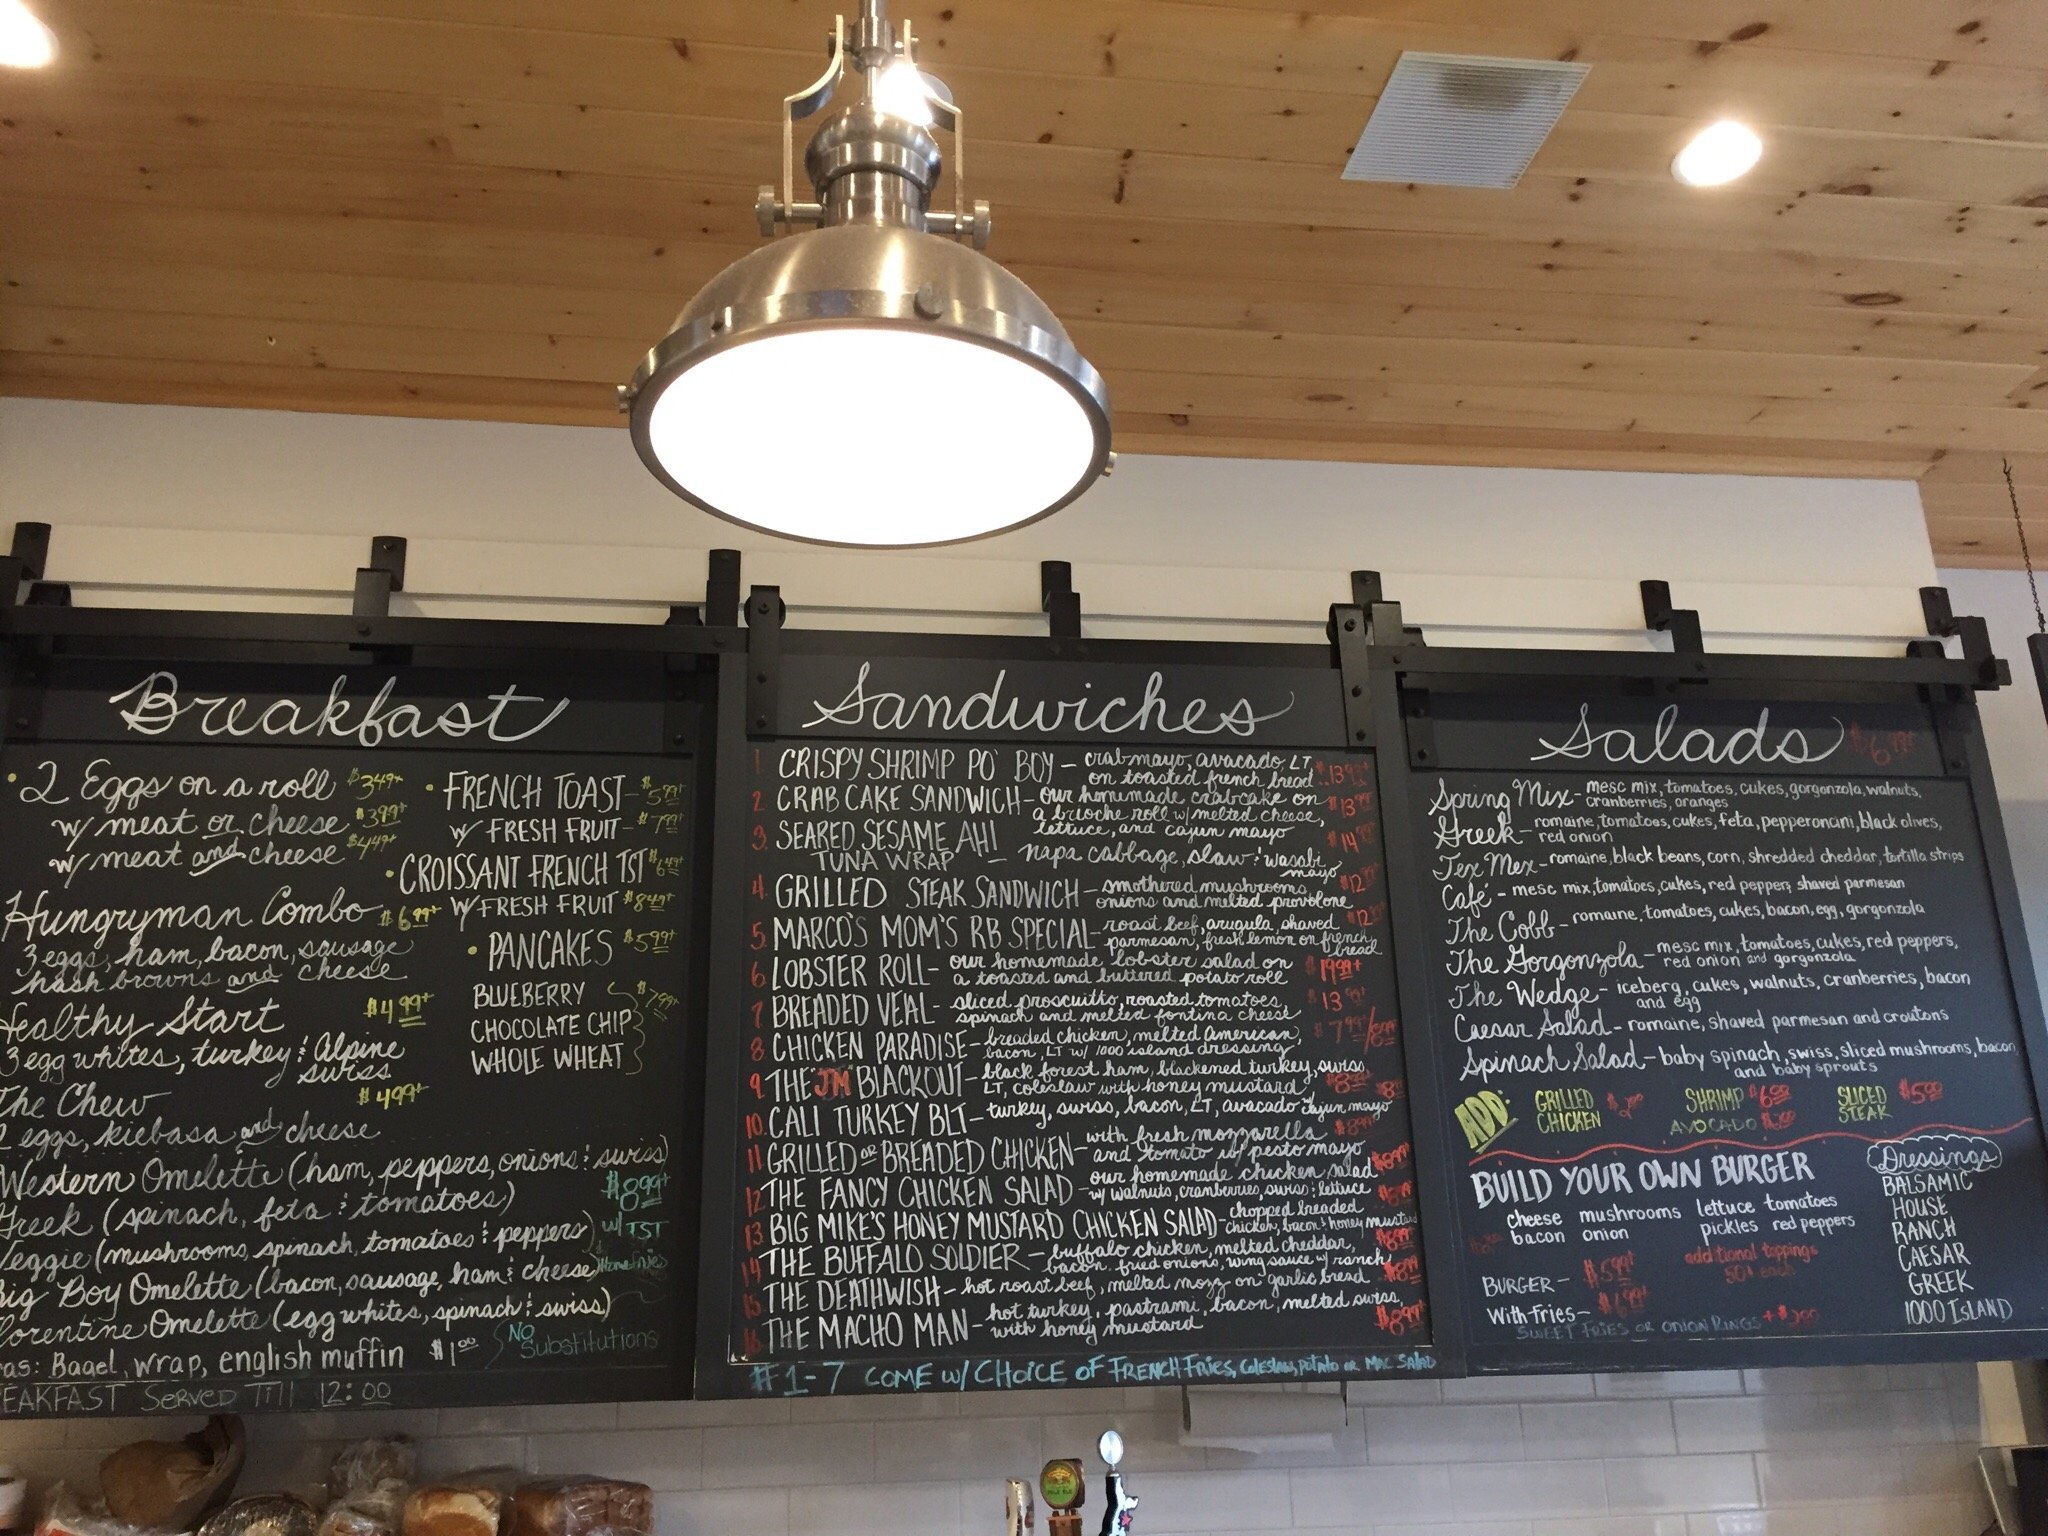 Breakfast
• 2 Eggs on a roll $3.49+
w/ meat or cheese $3.99+
w/ meat and cheese $4.49+
Hungryman Combo $6.99+
3 eggs, ham, bacon, sausage
hash browns and cheese
Healthy Start $4.99+
3 egg whites, turkey & Alpine
swiss
The Chew $4.99+
eggs, kiebasa and cheese
Western Omelette (ham, peppers, onions & swiss)
Greek (spinach, feta & tomatoes) $8.99+
Veggie (mushrooms, spinach, tomatoes & peppers) w/ TST
Big Boy Omelette (bacon, sausage, ham & cheese) & Homefries
Florentine Omelette (egg whites, spinach & swiss)
Bagel, wrap, english muffin $1.00 No Substitutions
EAKFAST Served Till 12:00
• FRENCH TOAST - $5.99+
w/ FRESH FRUIT - $7.99+
• CROISSANT FRENCH TST $6.49+
w/ FRESH FRUIT $8.49+
• PANCAKES $5.99+
BLUEBERRY
CHOCOLATE CHIP $7.99+
WHOLE WHEAT
Sandwiches
1 CRISPY SHRIMP PO' BOY - crab mayo, avocado, LT,
on toasted french bread $13.99+
2 CRAB CAKE SANDWICH - our homemade crabcake on
a brioche roll w/ melted cheese, $13.99
lettuce, and cajun mayo
3. SEARED SESAME AHI
TUNA WRAP - napa cabbage, slaw & wasabi $14.99
mayo
4. GRILLED STEAK SANDWICH - smothered mushrooms $12.99
onions and melted provolone
5. MARCO'S MOM'S RB SPECIAL - roast beef, arugula, shaved $12.99
parmesan, fresh lemon on french
bread
6 LOBSTER ROLL - our homemade lobster salad on $19.99+
a toasted and buttered potato roll
7 BREADED VEAL - sliced proscuitto, roasted tomatoes, $13.99
spinach and melted fontina cheese
8 CHICKEN PARADISE - breaded chicken, melted American, $7.99/8.99
bacon, LT w/ 1000 island dressing
9 THE "JM" BLACKOUT - black forest ham, blackened turkey, swiss
LT, coleslaw with honey mustard $8.99
10. CALI TURKEY BLT - turkey, swiss, bacon, LT, avocado w/ cajun mayo
$8.99
11 GRILLED OR BREADED CHICKEN - with fresh mozzarella
and tomato w/ pesto mayo $8.99
12 THE FANCY CHICKEN SALAD - our homemade chicken salad
w/ walnuts, cranberries, swiss & lettuce $8.99
13 BIG MIKE'S HONEY MUSTARD CHICKEN SALAD - chopped breaded
chicken, bacon & honey mustard
$8.99
14 THE BUFFALO SOLDIER - buffalo chicken, melted cheddar,
bacon, fried onions, wing sauce w/ ranch $8.99
15 THE DEATHWISH - hot roast beef, melted mozz on garlic bread
16 THE MACHO MAN - hot turkey, pastrami, bacon, melted swiss,
with honey mustard $8.99
#1-7 COME W/ CHOICE OF FRENCH FRIES, COLESLAW, POTATO OR MAC SALAD
Salads
Spring Mix - mesc mix, tomatoes, cukes, gorgonzola, walnuts,
cranberries, oranges
Greek - romaine, tomatoes, cukes, feta, pepperoncini, black olives,
red onion
Tex Mex - romaine, black beans, corn, shredded cheddar, tortilla strips
Café - mesc mix, tomatoes, cukes, red peppers, shaved parmesan
The Cobb - romaine, tomatoes, cukes, bacon, egg, gorgonzola
The Gorgonzola - mesc mix, tomatoes, cukes, red peppers,
red onion and gorgonzola
The Wedge - iceberg, cukes, walnuts, cranberries, bacon
and egg
Caesar Salad - romaine, shaved parmesan and croutons
Spinach Salad - baby spinach, swiss, sliced mushrooms, bacon
and baby sprouts
ADD: GRILLED CHICKEN $2.00 SHRIMP $6.00 SLICED STEAK $5.00
AVOCADO
BUILD YOUR OWN BURGER
cheese mushrooms lettuce tomatoes
bacon onion pickles red peppers
additional toppings
50¢ each
BURGER - $5.99+
With Fries - $6.99+
SWEET FRIES OR ONION RINGS + $2.00
Dressings
BALSAMIC
HOUSE
RANCH
CAESAR
GREEK
1000 ISLAND